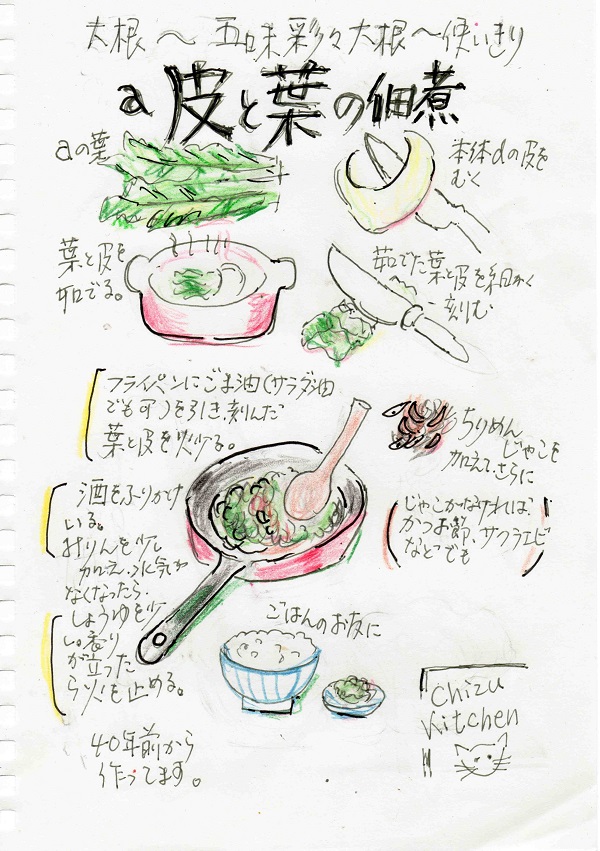 大根～五味彩々大根～使いきり
a 皮と葉の佃煮
aの葉
本体dの皮を
むく
葉と皮を
茹でる。
茹でた葉と皮を細かく
刻む
フライパンにごま油(サラダ油
でも可)を引き、刻んだ
葉と皮を炒ける。
ちりめん
じゃこを
加えて、さらに
酒をふりかけ
いる。
みりんを少し
加え、水気が
なくなったら、
しょうゆを少
し。香り
が立った
ら火を止める。
(じゃこがなければ、
かつお節、サクラエビ
などでも)
ごはんのお友に
40年前から
作ってます。
Chizu
Kitchen